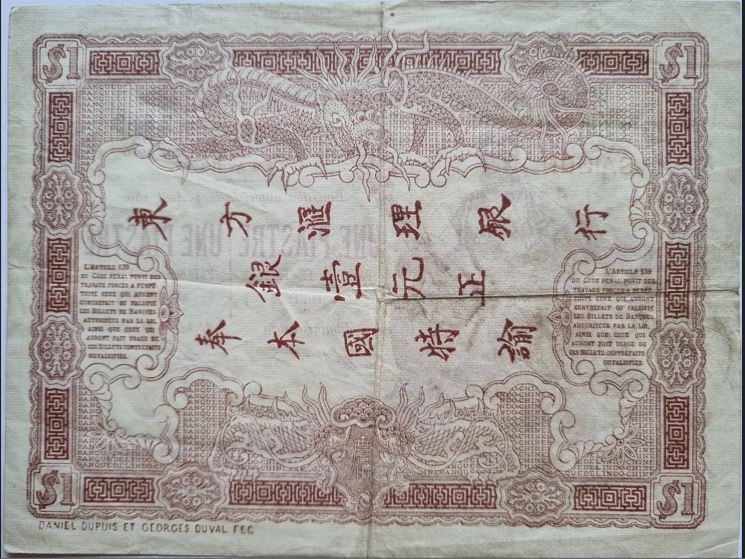 $1 $1
東方滙理銀行
銀壹元正
奉本國特諭
L'ARTICLE 139
DU CODE PENAL PUNIT DES
TRAVAUX FORCÉS A PERPÉ-
TUITÉ CEUX QUI AURONT
CONTREFAIT OU FALSIFIÉ
LES BILLETS DE BANQUES
AUTORISÉES PAR LA LOI,
AINSI QUE CEUX QUI
AURONT FAIT USAGE DE
CES BILLETS CONTREFAITS
OU FALSIFIÉS.
L'ARTICLE 139
DU CODE PENAL PUNIT DES
TRAVAUX FORCÉS A PERPÉ-
TUITÉ CEUX QUI AURONT
CONTREFAIT OU FALSIFIÉ
LES BILLETS DE BANQUES
AUTORISÉES PAR LA LOI,
AINSI QUE CEUX QUI
AURONT FAIT USAGE DE
CES BILLETS CONTREFAITS
OU FALSIFIÉS.
$1 $1
DANIEL DUPUIS ET GEORGES DUVAL FEC